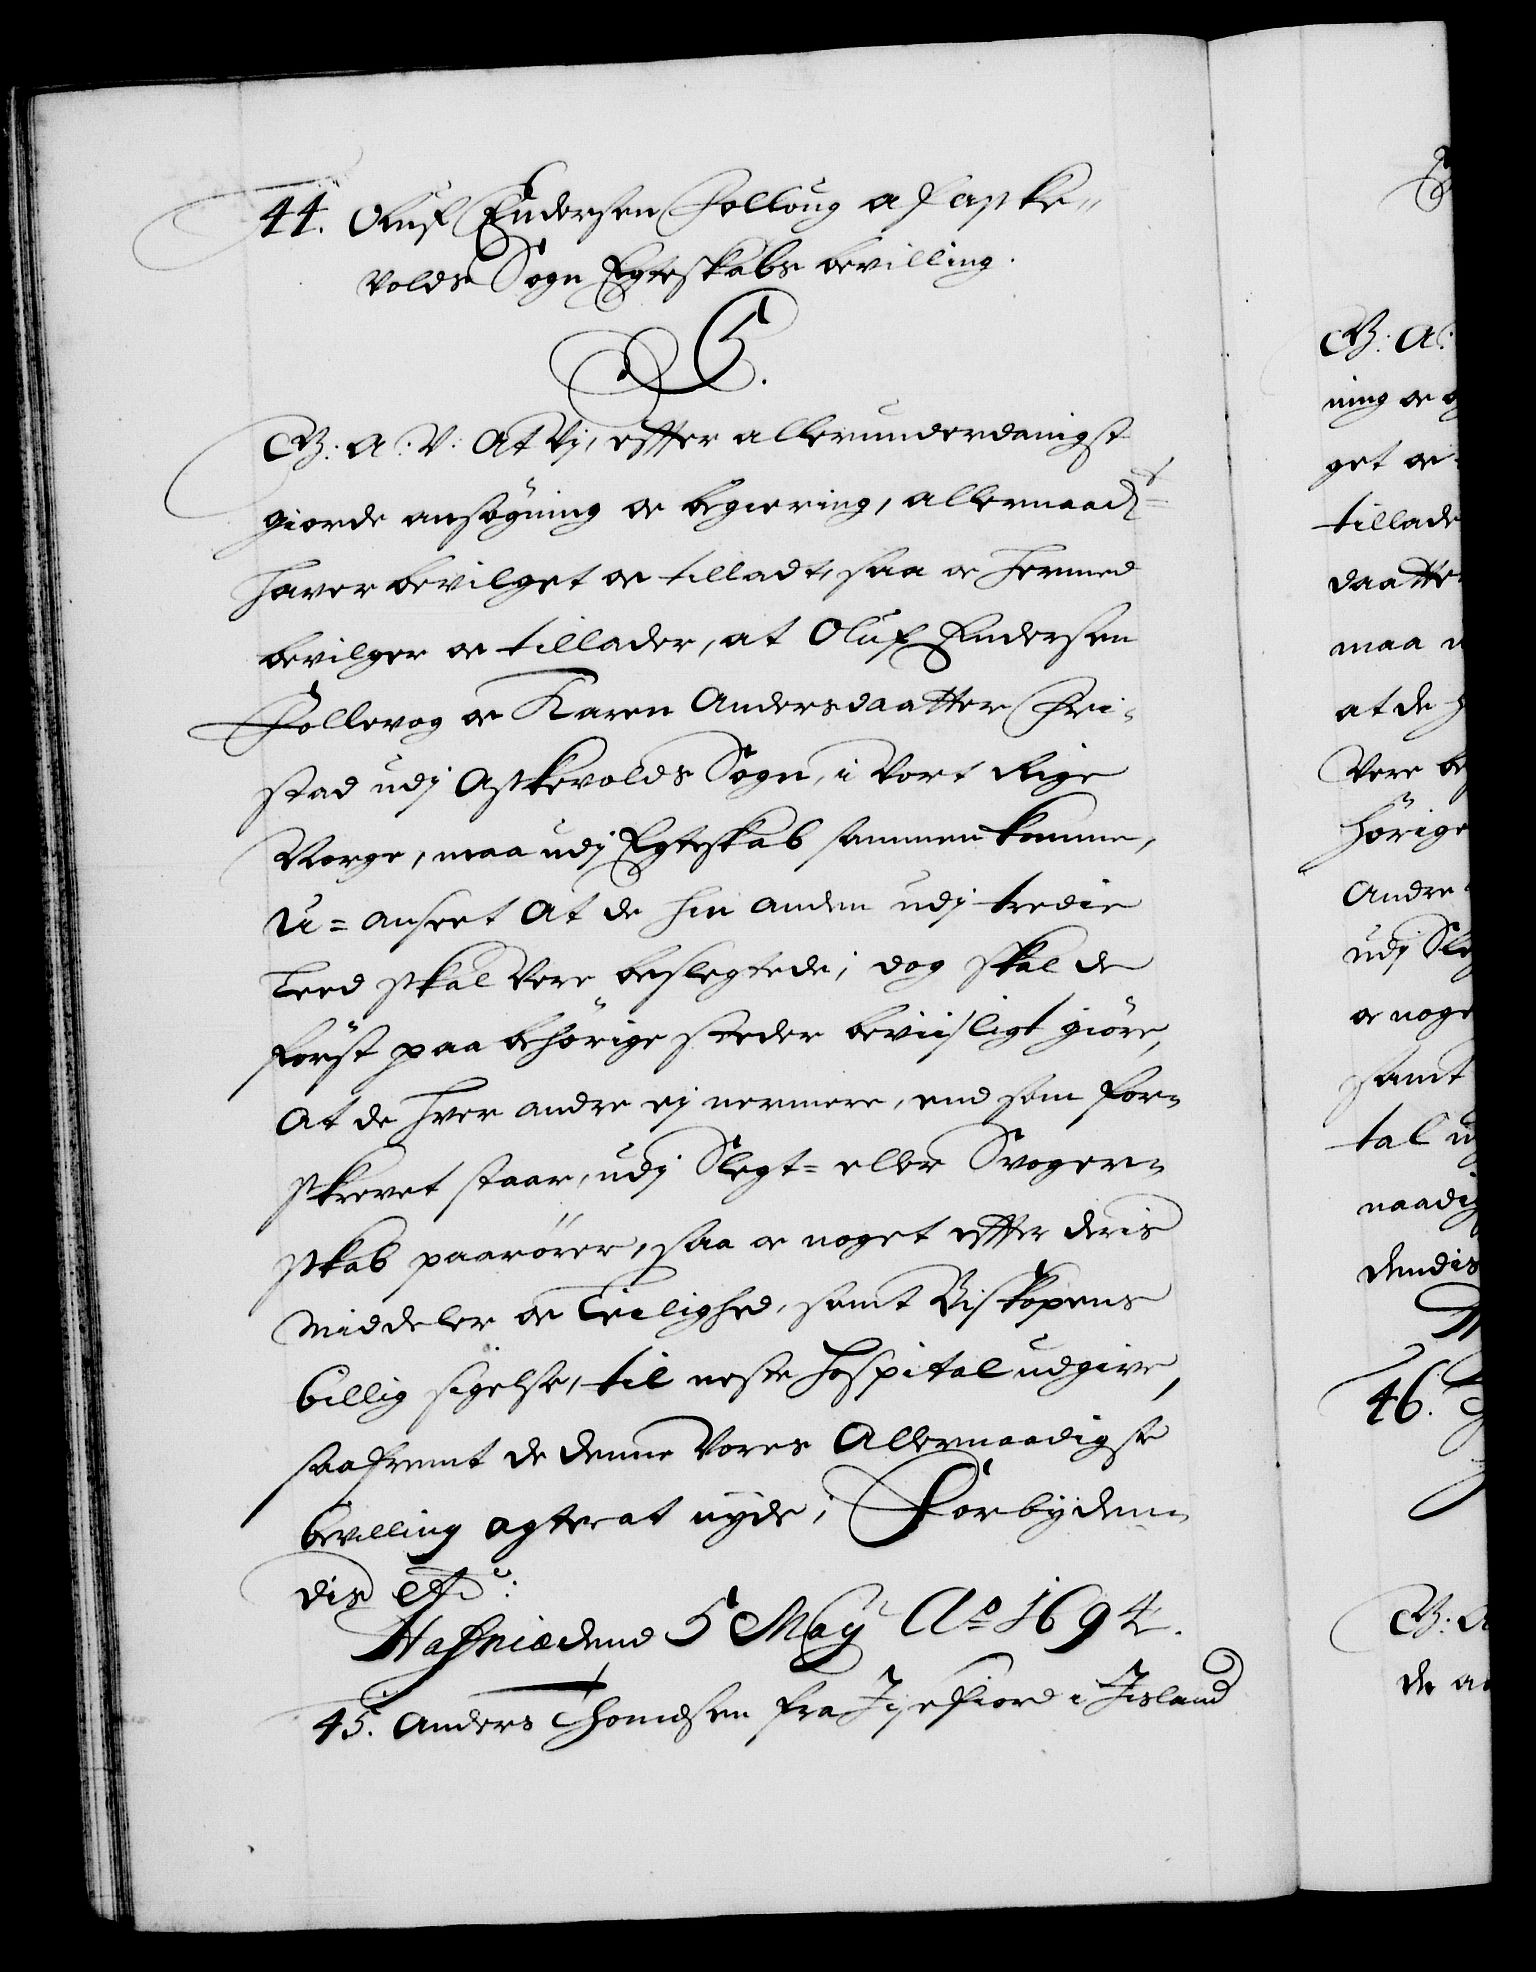 44. Oluf Endersen Hollvug af Aske„
volds Sogn Egteskabs bevilling.
C5.
G: A: V: At Vj, effter allerunderdanigst
giorde ansøgning oc begiering, allernaadst
hafver bevilget oc tilladt, saa oc hermed
bevilger oc tillader, at Oluf Endersen
Hollevog oc Karen Andersdaatter Hri-
stad udj Askevolds Sogn, i Vort Rige
Norge, maa udj Egteskab sammen komme,
U=anseet At de hin anden udj tredie
Leed skal vere beslegtede; dog skal de
først paa behørige steder beviisligt giøre,
At de hver andre ej nermere, end som for„
skrevet staar, udj Slegt= eller Svoger„
skab paarører, saa oc noget effter deris
Middeler oc Leilighed, samt Biskopens
billig sigelse, til neste Hospital udgive,
saafremt de denne Vores Allernaadigste
bevilling agter at nyde; Forbydend„
dis etc:
Hafniæ dend 5 Maÿ Ao 1694.
45. Anders Thomesen fra Jisefiord i Jisland
G: A:
ning oc
get oc
tillade
daatter
maa
at de
Vere be
hørige
Andre
udj Sle
oc noge
samt
tal u
naadig
dendis
46.
G: A
de a